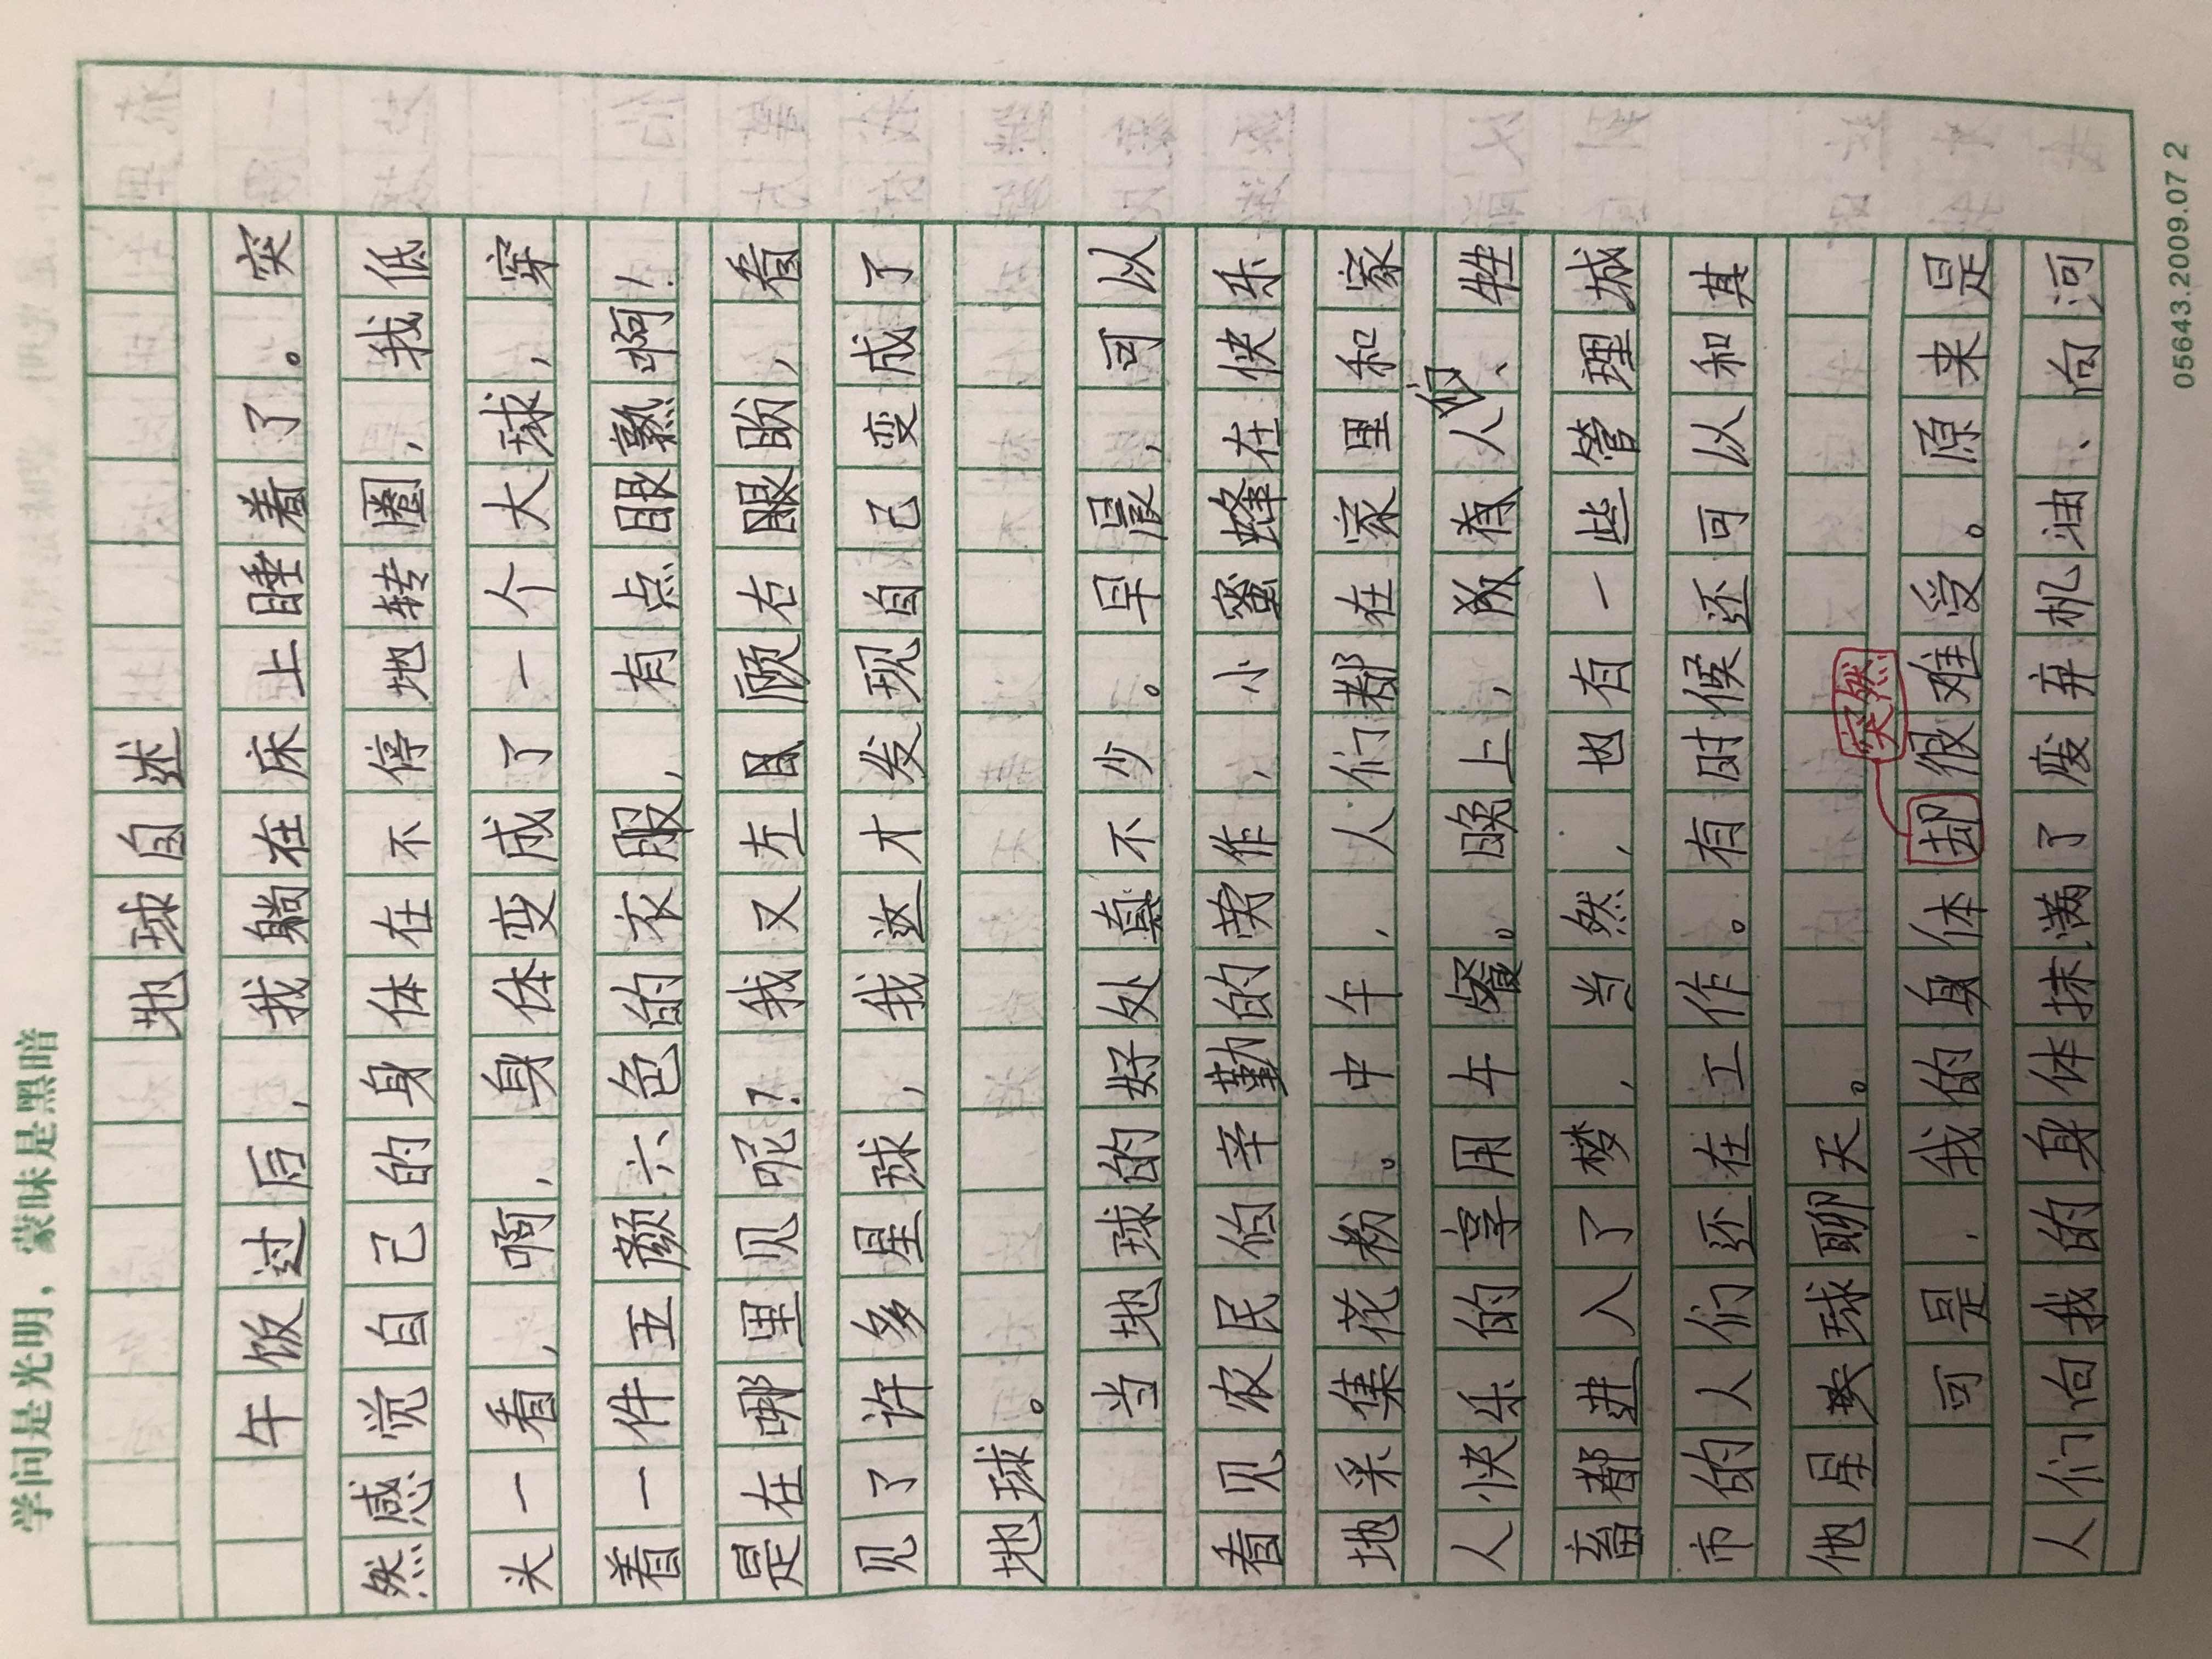 学问是光明，蒙昧是黑暗
地球自述
午饭过后，我躺在床上睡着了。突
然感觉自己的身体在不停地转圈，我低
头一看，啊，身体变成了一个大球，穿
着一件五颜六色的衣服，有点眼熟啊！
是在哪里见呢？我又左目顾右眼盼，看
见了许多星球，我这才发现自己变成了
地球。
当地球的好处真不少。早晨，可以
看见农民伯辛勤的劳作，小蜜蜂在快乐
地采集花粉。中午，人们都在家里和家
人快乐的享用午餐。晚上，人们、牲
畜都进入了梦，当然，也有一些管理城
市的人们还在工作。有时候还可以和其
他星球聊天。
突然
可是，我的身体却很难受。原来是
人们向我的身体抹满了废弃机油、向河
05643.2009.07 2